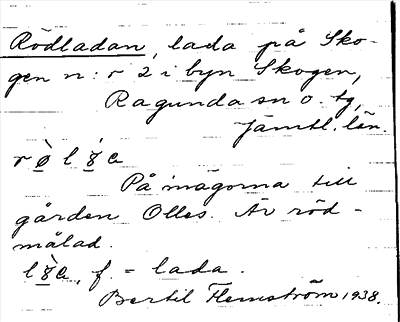 Rödladan, lada på Sko-
gen n:r 2 i byn Skogen,
Ragunda sn o. tg,
Jämtl. län.
På mägorna till
gården Olles. Är röd-
målad.
f. = lada.
Bertil Flemström 1938.